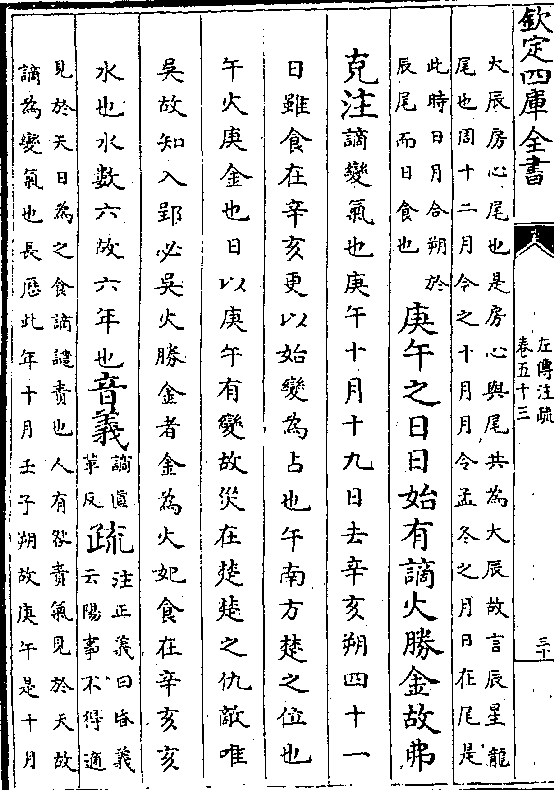 欽定四庫全書
左傳注疏
卷五十三
三十
大辰房心尾也是房心與尾共為大辰故言辰星龍
尾也周十二月今之十月月令孟冬之月日在尾是
此時日月合朔於
辰尾而日食也
庚午之日日始有謫火勝金故弗
克注謫變氣也庚午十月十九日去辛亥朔四十一
日雖食在辛亥更以始變為占也午南方楚之位也
午火庚金也日以庚午有變故災在楚楚之仇敵唯
吳故知入郢必吳火勝金者金為火妃食在辛亥亥
水也水數六故六年也音義
謫直
革反
疏
注正義曰昏義
云陽事不得適
見於天日為之食謫譴責也人有咎責氣見於天故
謫為變氣也長歷此年十月壬子朔故庚午是十月